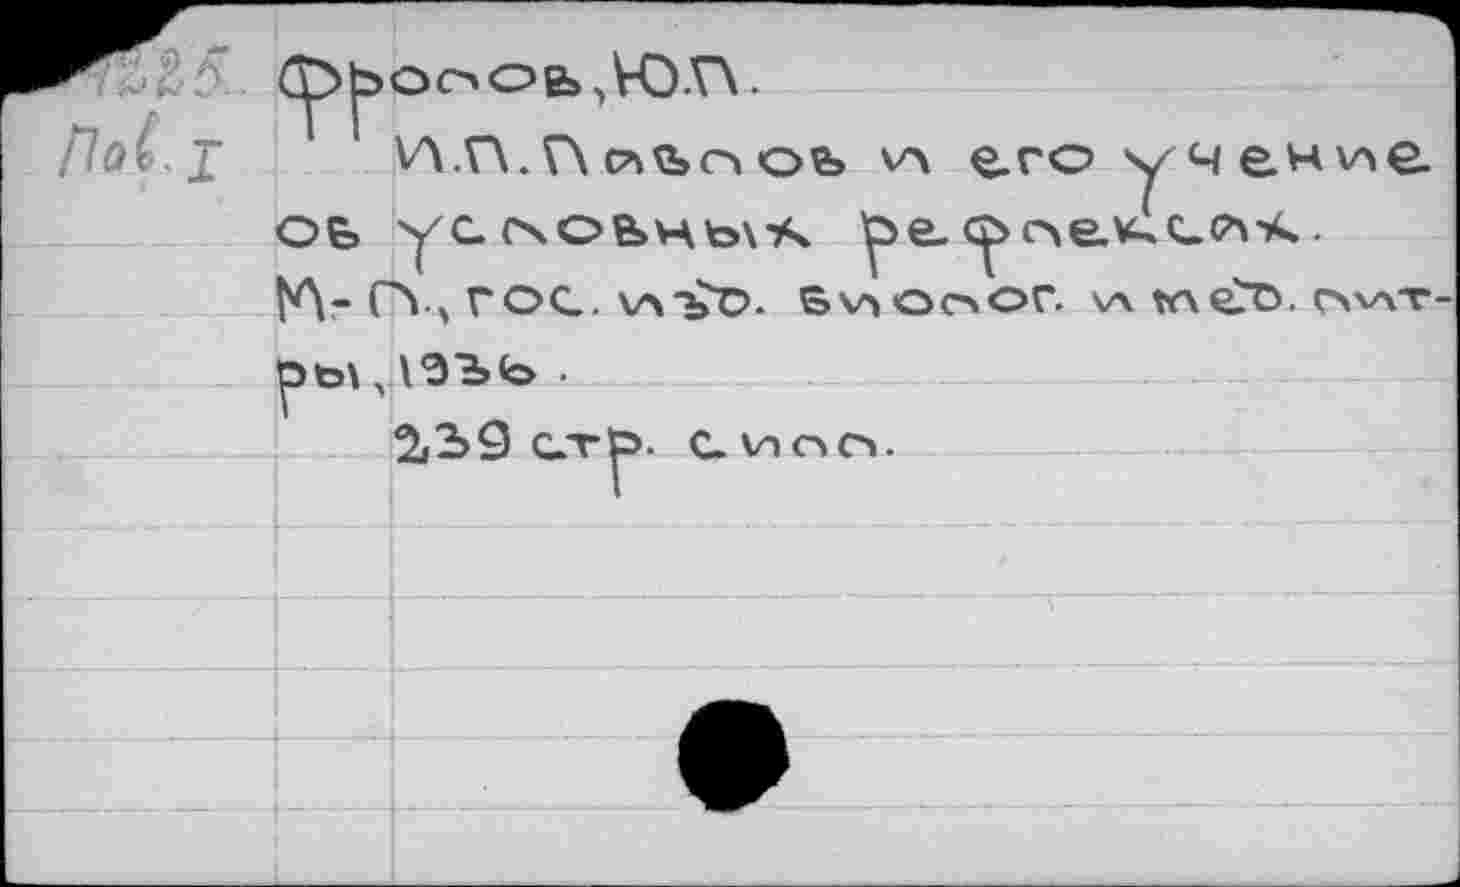 Фролов, Ю.П.
И.П. Павлов и его учение
об условных рефлексах.
М.-Л., гос. изд. биолог. и мед. лит-
ры, 1936.
239 стр. с илл.